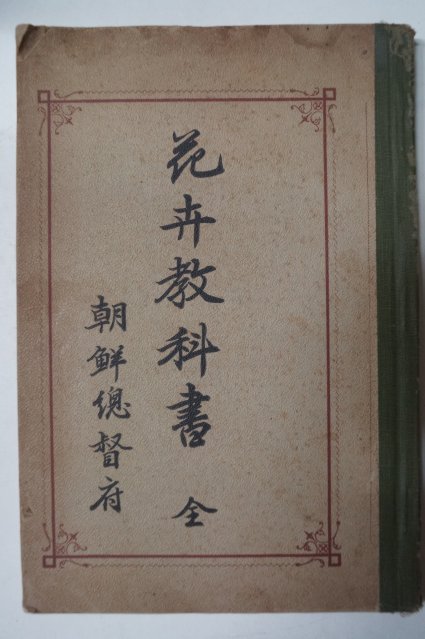 花卉教科書 全
朝鮮總督府